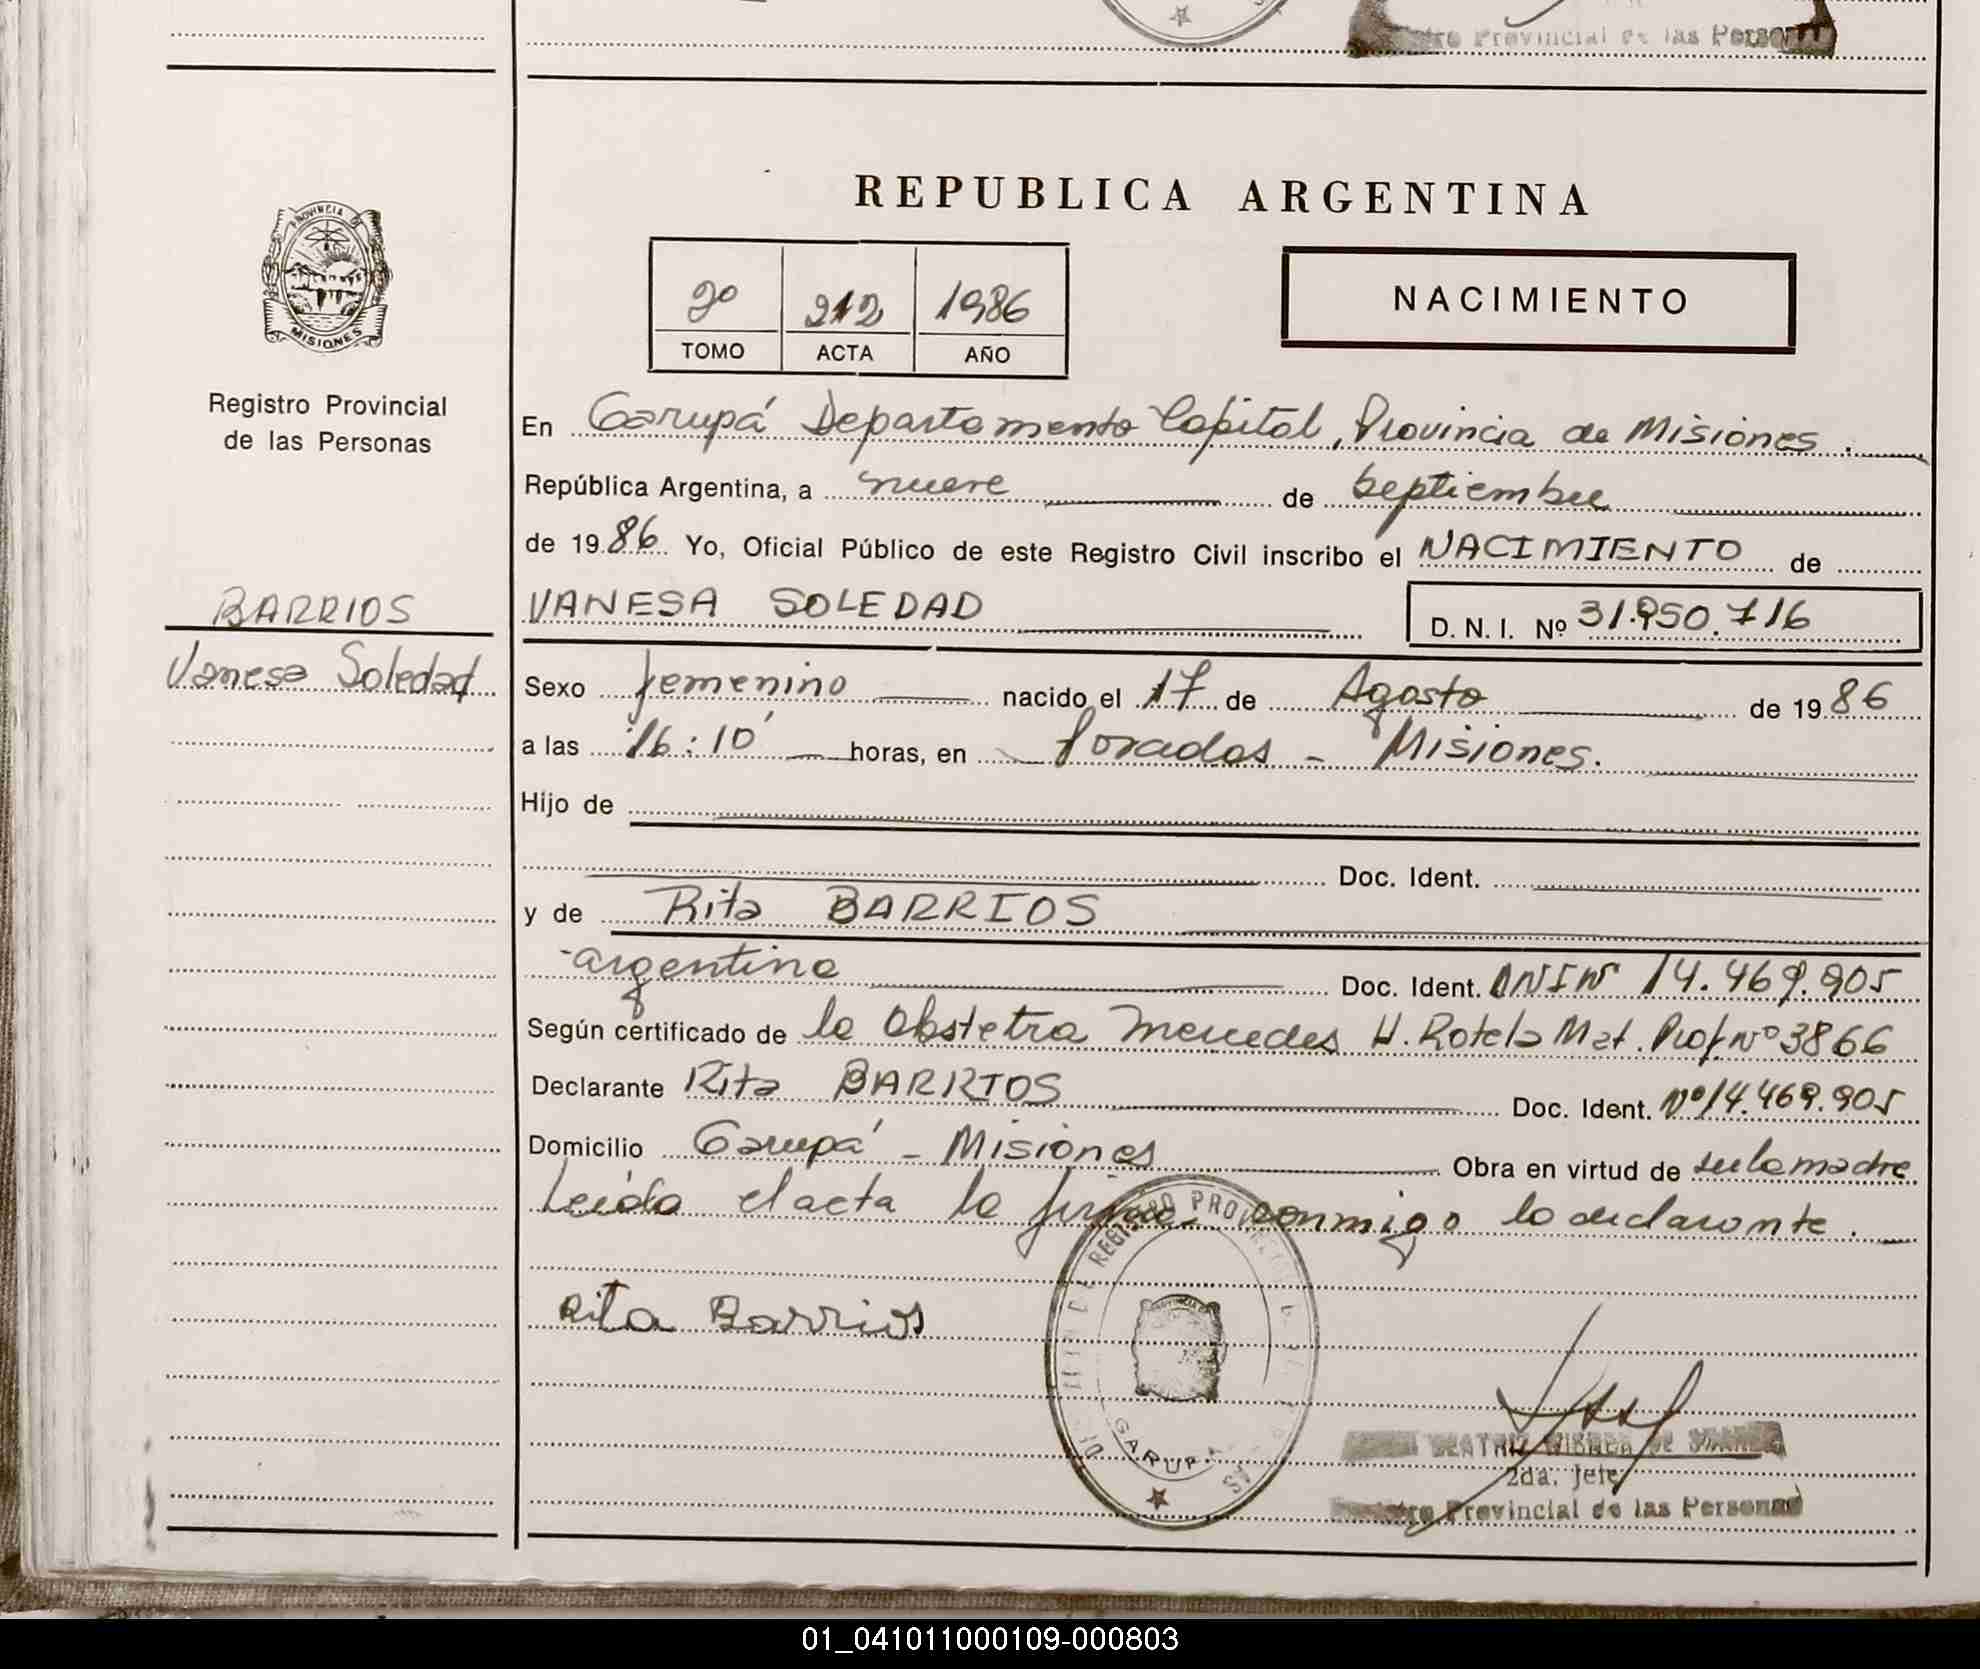 Provincial de las Person
REPUBLICA ARGENTINA
PROVINCIA DE
MISIONES
2º 212 1986
TOMO ACTA AÑO
NACIMIENTO
Registro Provincial
de las Personas
En Garupá Departamento Capital, Provincia de Misiones.
República Argentina, a nueve de septiembre
de 1986 Yo, Oficial Público de este Registro Civil inscribo el NACIMIENTO de
BARRIOS
VANESA SOLEDAD D. N. I. Nº 31.950.716
Vanesa Soledad
Sexo femenino nacido el 17 de Agosto de 1986
a las 16:10' horas, en Posadas - Misiones.
Hijo de
Doc. Ident.
y de Rita BARRIOS
argentina Doc. Ident. DNI Nº 14.469.905
Según certificado de la Obstetra Mercedes H. Rotela Mat. Prof. Nº 3866
Declarante Rita BARRIOS Doc. Ident. Nº 14.469.905
Domicilio Garupá - Misiones Obra en virtud de ser la madre
Leída el acta la firma conmigo la declarante.
Rita Barrios
GARUPA
BEATRIZ
2da. Jefe
Provincial de las Personas
01_041011000109-000803